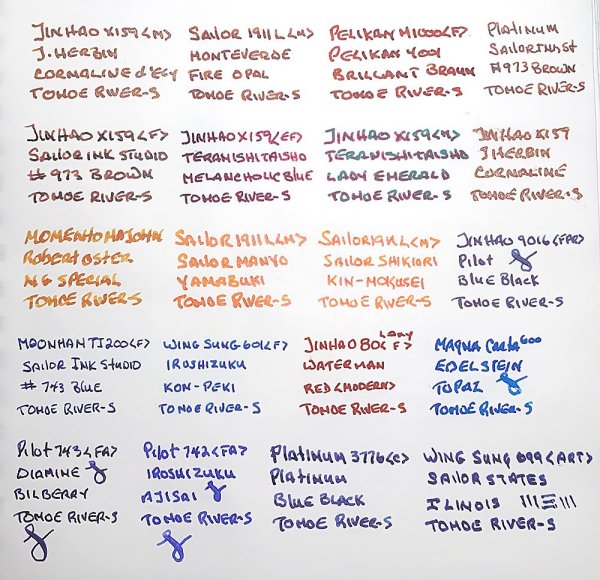 JINHAO X159 <M>
J. HERBIN
CORNALINE d'EGY
TOMOE RIVER-S
SAILOR 1911L <M>
MONTEVERDE
FIRE OPAL
TOMOE RIVER-S
PELIKAN M1000 <F>
PELIKAN 4001
BRILLANT BRAUN
TOMOE RIVER-S
PLATINUM
SAILOR INK ST
#973 BROWN
TOMOE RIVER-S
JINHAO X159 <F>
SAILOR INK STUDIO
#973 BROWN
TOMOE RIVER-S
JINHAO X159 <EF>
TERANISHI TAISHO
MELANCHOLIC BLUE
TOMOE RIVER-S
JINHAO X159 <M>
TERANISHI TAISHO
LADY EMERALD
TOMOE RIVER-S
JINHAO X159
J HERBIN
CORNALINE
TOMOE RIVER-S
MOMENTO MAJOHN
Robert OSTER
NG SPECIAL
TOMOE RIVER-S
SAILOR 1911L <M>
SAILOR MANYO
YAMABUKI
TOMOE RIVER-S
SAILOR 1911L <M>
SAILOR SHIKIORI
KIN-MOKUSEI
TOMOE RIVER-S
JINHAO 9016 <FPR>
Pilot
BLUE BLACK
TOMOE RIVER-S
MOONMAN TI200 <F>
SAILOR INK STUDIO
#743 BLUE
TOMOE RIVER-S
WING SUNG 601 <F>
IROSHIZUKU
KON-PEKI
TOMOE RIVER-S
JINHAO 80 LAMY <F>
WATERMAN
RED <MODERN>
TOMOE RIVER-S
MAGNA CARTA 600
EDELSTEIN
TOPAZ
TOMOE RIVER-S
Pilot 743 <FA>
DIAMINE
BILBERRY
TOMOE RIVER-S
Pilot 742 <FA>
IROSHIZUKU
AJISAI
TOMOE RIVER-S
PLATINUM 3776 <C>
PLATINUM
BLUE BLACK
TOMOE RIVER-S
WING SUNG 699 <ART>
SAILOR STATES
ILINOIS
TOMOE RIVER-S